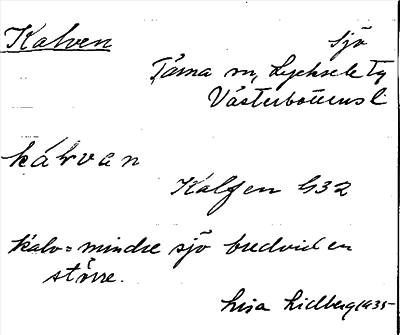 Kalven sjö
Tärna sn, Lycksele tg
Västerbottens l
kálvan
Kalfen G32
kalv = mindre sjö bredvid en
större.
Lisa Lidberg 1935